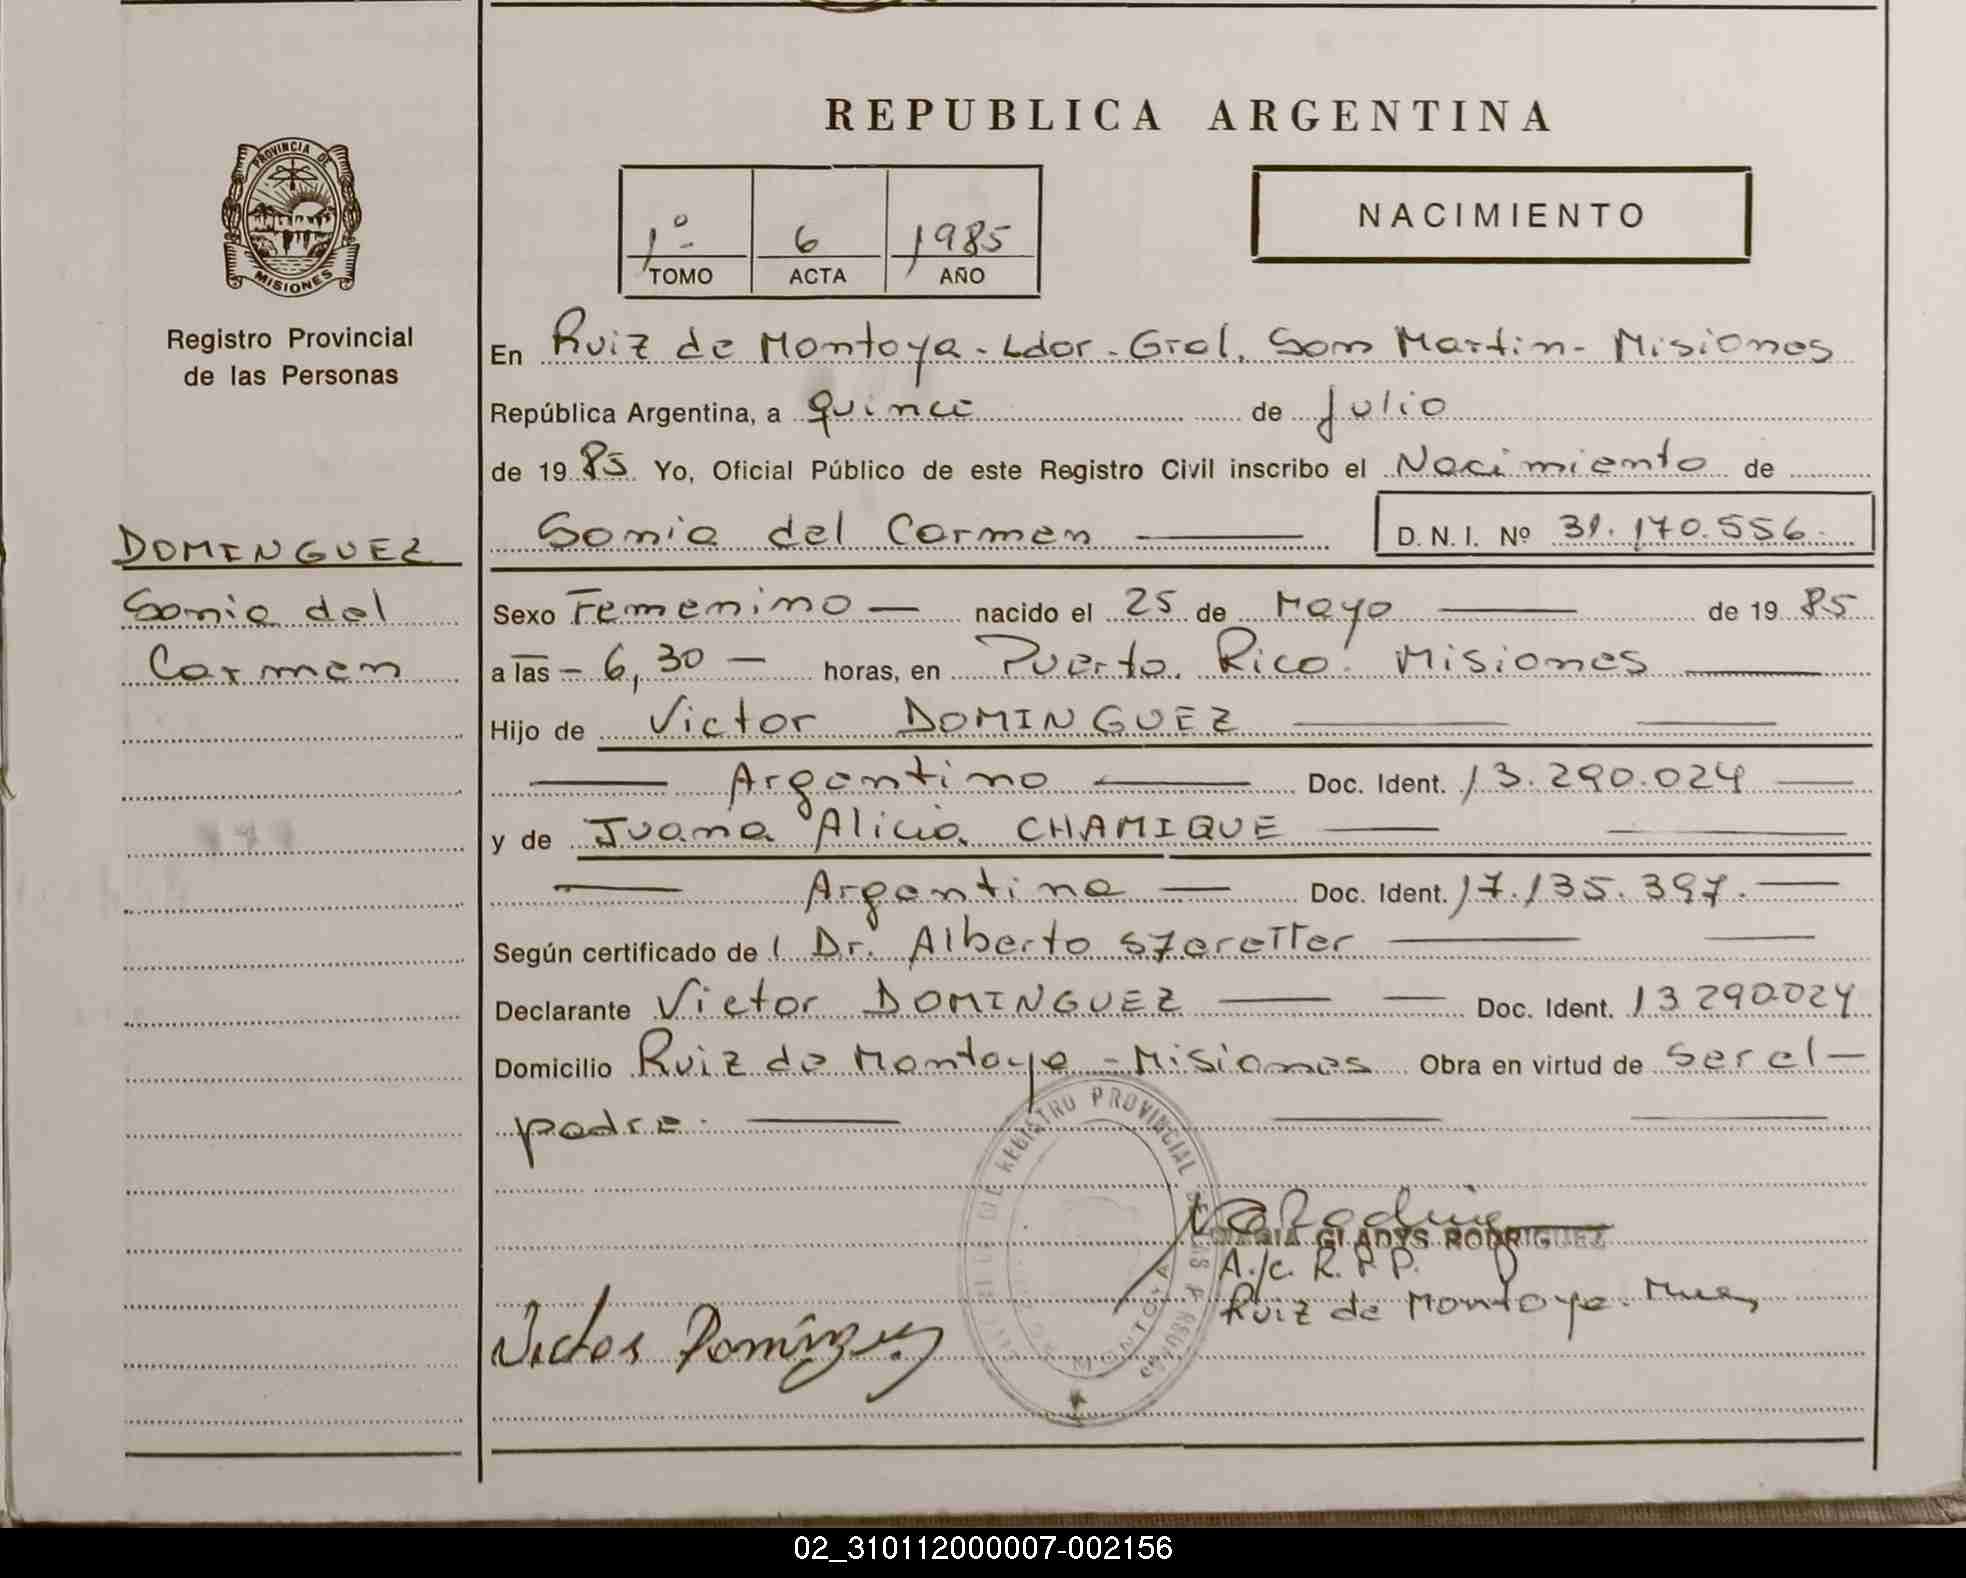 REPUBLICA ARGENTINA
PROVINCIA DE
MISIONES
Registro Provincial
de las Personas
1º 6 1985
TOMO ACTA AÑO
NACIMIENTO
En Ruiz de Montoya - Ldor. Gral. San Martin - Misiones
República Argentina, a quince de Julio
de 1985 Yo, Oficial Público de este Registro Civil inscribo el Nacimiento de
Sonia del Carmen D. N. I. Nº 31.170.556.
DOMINGUEZ
Sonia del
Carmen
Sexo Femenino nacido el 25 de Mayo de 1985
a las - 6,30 - horas, en Puerto Rico. Misiones
Hijo de Victor DOMINGUEZ
Argentino Doc. Ident. 13.290.024
y de Juana Alicia CHAMIQUE
Argentina Doc. Ident. 17.135.397.
Según certificado de l Dr. Alberto
Declarante Victor DOMINGUEZ Doc. Ident. 13290024
Domicilio Ruiz de Montoya - Misiones Obra en virtud de ser el
padre.
REGISTRO PROVINCIAL
MONTOYA
GLADYS RODRIGUEZ
A./c. R.P.P.
Ruiz de Montoya. Mnes
Victor Dominguez
02_310112000007-002156